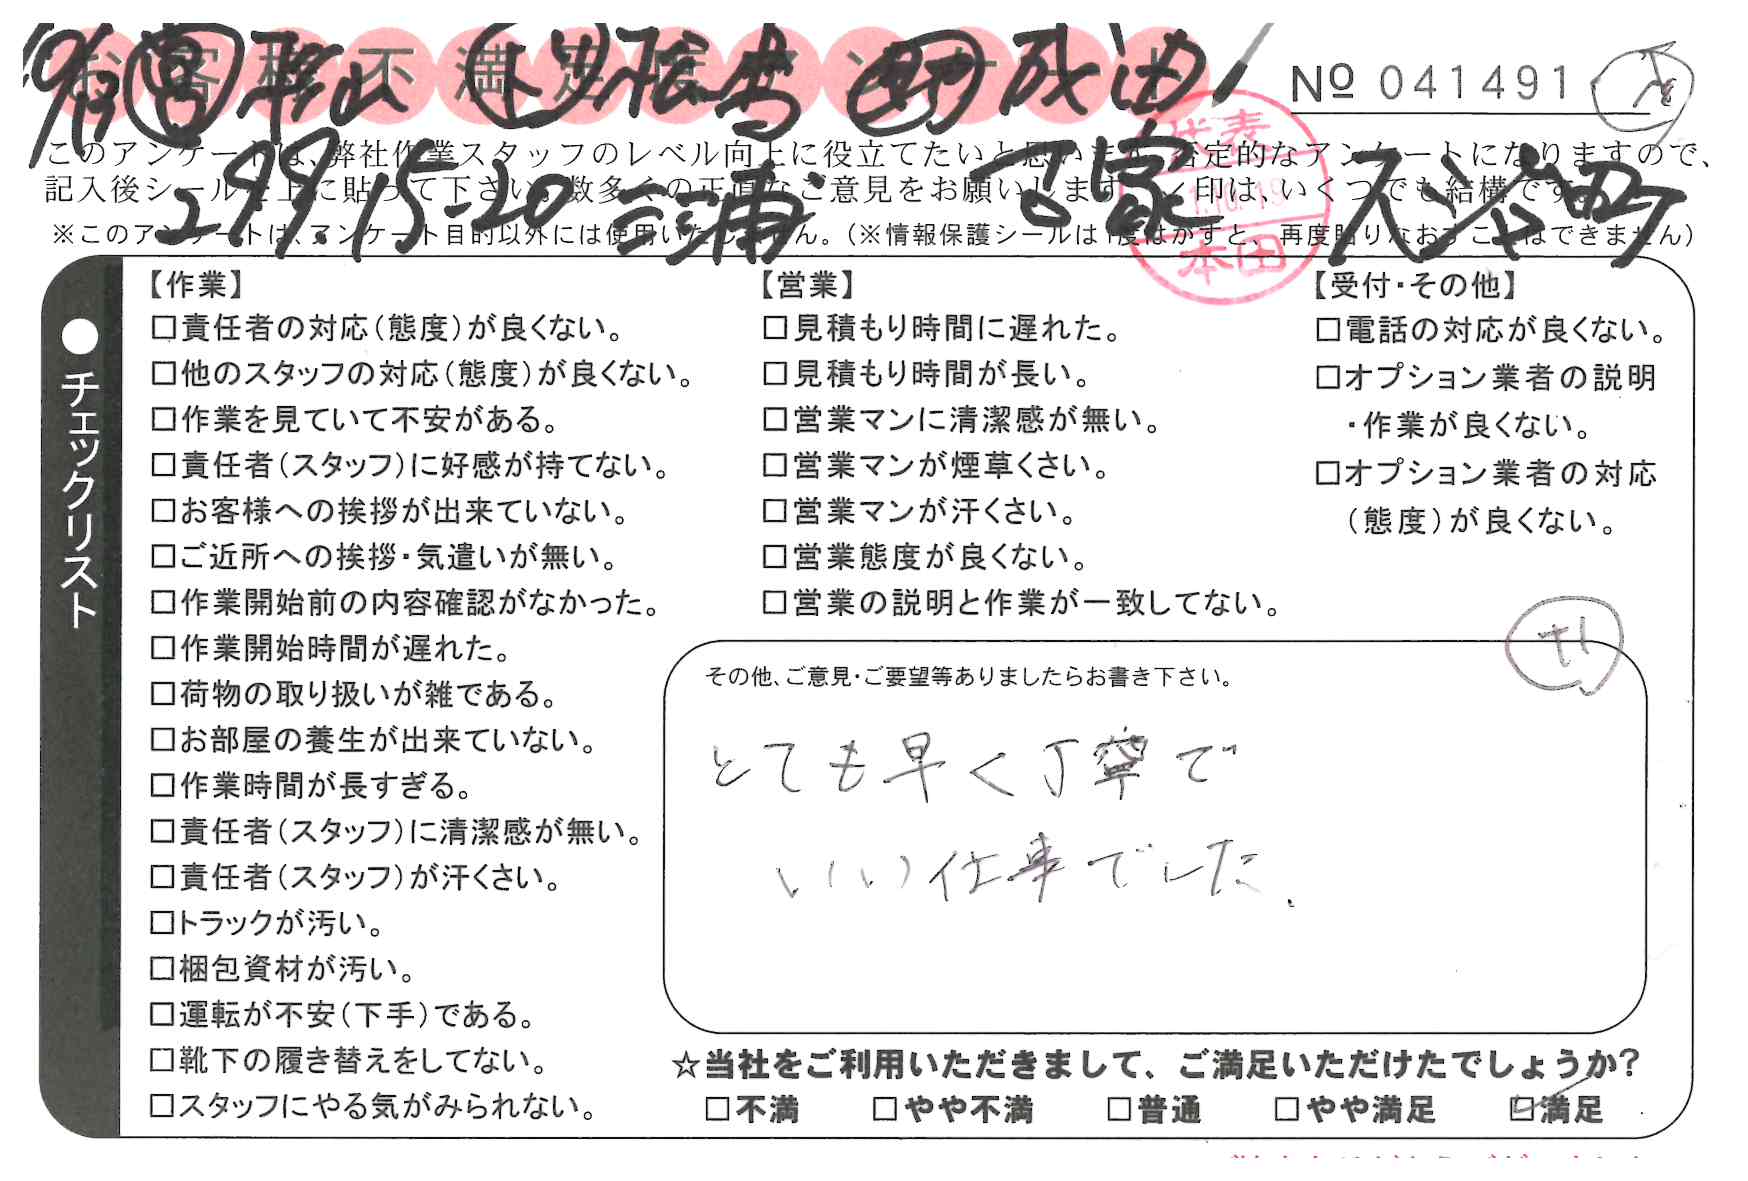 お客様不満足度アンケート
Nº 041491
このアンケートは、弊社作業スタッフのレベル向上に役立てたいと思います。否定的なアンケートになりますので、
記入後シールを上に貼って下さい。数多くの正直なご意見をお願いします。✓印は、いくつでも結構です。
※このアンケートは、アンケート目的以外には使用いたしません。（※情報保護シールは1度はがすと、再度貼りなおすことはできません）
299.15-20 三浦
代表
本田
●チェックリスト
【作業】
□責任者の対応（態度）が良くない。
□他のスタッフの対応（態度）が良くない。
□作業を見ていて不安がある。
□責任者（スタッフ）に好感が持てない。
□お客様への挨拶が出来ていない。
□ご近所への挨拶・気遣いが無い。
□作業開始前の内容確認がなかった。
□作業開始時間が遅れた。
□荷物の取り扱いが雑である。
□お部屋の養生が出来ていない。
□作業時間が長すぎる。
□責任者（スタッフ）に清潔感が無い。
□責任者（スタッフ）が汗くさい。
□トラックが汚い。
□梱包資材が汚い。
□運転が不安（下手）である。
□靴下の履き替えをしてない。
□スタッフにやる気がみられない。
【営業】
□見積もり時間に遅れた。
□見積もり時間が長い。
□営業マンに清潔感が無い。
□営業マンが煙草くさい。
□営業マンが汗くさい。
□営業態度が良くない。
□営業の説明と作業が一致してない。
【受付・その他】
□電話の対応が良くない。
□オプション業者の説明
・作業が良くない。
□オプション業者の対応
（態度）が良くない。
その他、ご意見・ご要望等ありましたらお書き下さい。
とても早く丁寧で
いい仕事でした.
☆当社をご利用いただきまして、ご満足いただけたでしょうか?
□不満 □やや不満 □普通 □やや満足 ☑満足